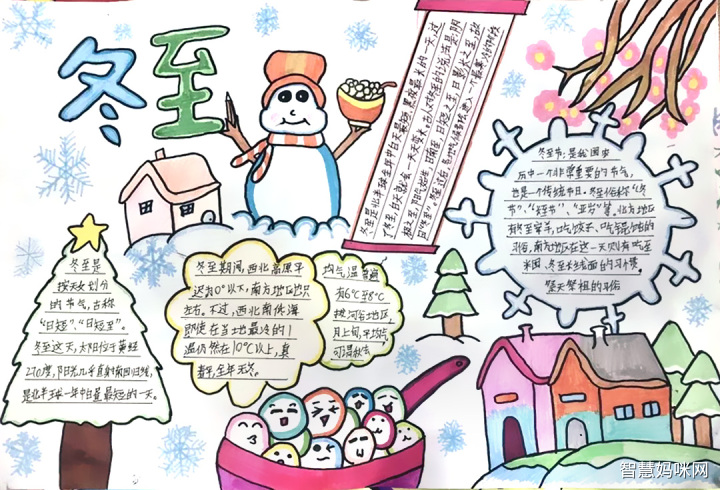 冬至
冬至是北半球全年中白天最短、黑夜最长的一天，过
了冬至，白天就会一天天变长。古人对冬至的说法是：阴
极之至，阳气始生，日南至，日短之至，日影长之至，故
曰“冬至”。冬至过后，
冬至节，是我国
历中一个非常重要的节气，
也是一个传统节日，冬至俗称“冬
节”、“长至节”、“亚岁”等，北方地区
有冬至宰羊，吃饺子、吃馄饨的
习俗，南方地区在这一天则有吃冬至
米团、冬至长线面的习惯。
祭天祭祖的习俗
冬至是
按天文划分
的节气，古称
“日短”、“日短至”。
冬至这天，太阳位于黄经
270度，阳光几乎直射南回归线，
是北半球一年中白昼最短的一天。
冬至期间，西北高原平
均气温普遍
在0°以下，南方地区也只
有6℃至8℃
左右。不过，西南低海
拔河谷地区，
即使在当地最冷的1
月上旬，平均气
温仍然在10℃以上，真
可谓秋去
春平，全年无冬。
智慧妈咪网